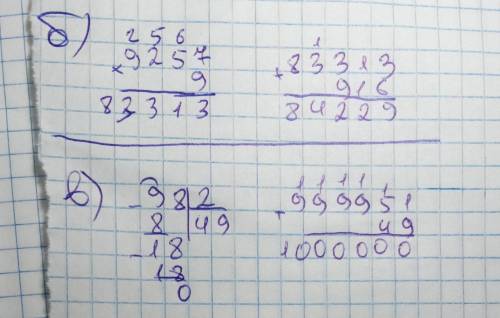 б)
2 5 6
9257
× 9
83313
1
83313
+ 916
84229
в)
- 98 | 2
8 | 49
- 18
18
0
1 1 1 1
999951
+ 49
1000000